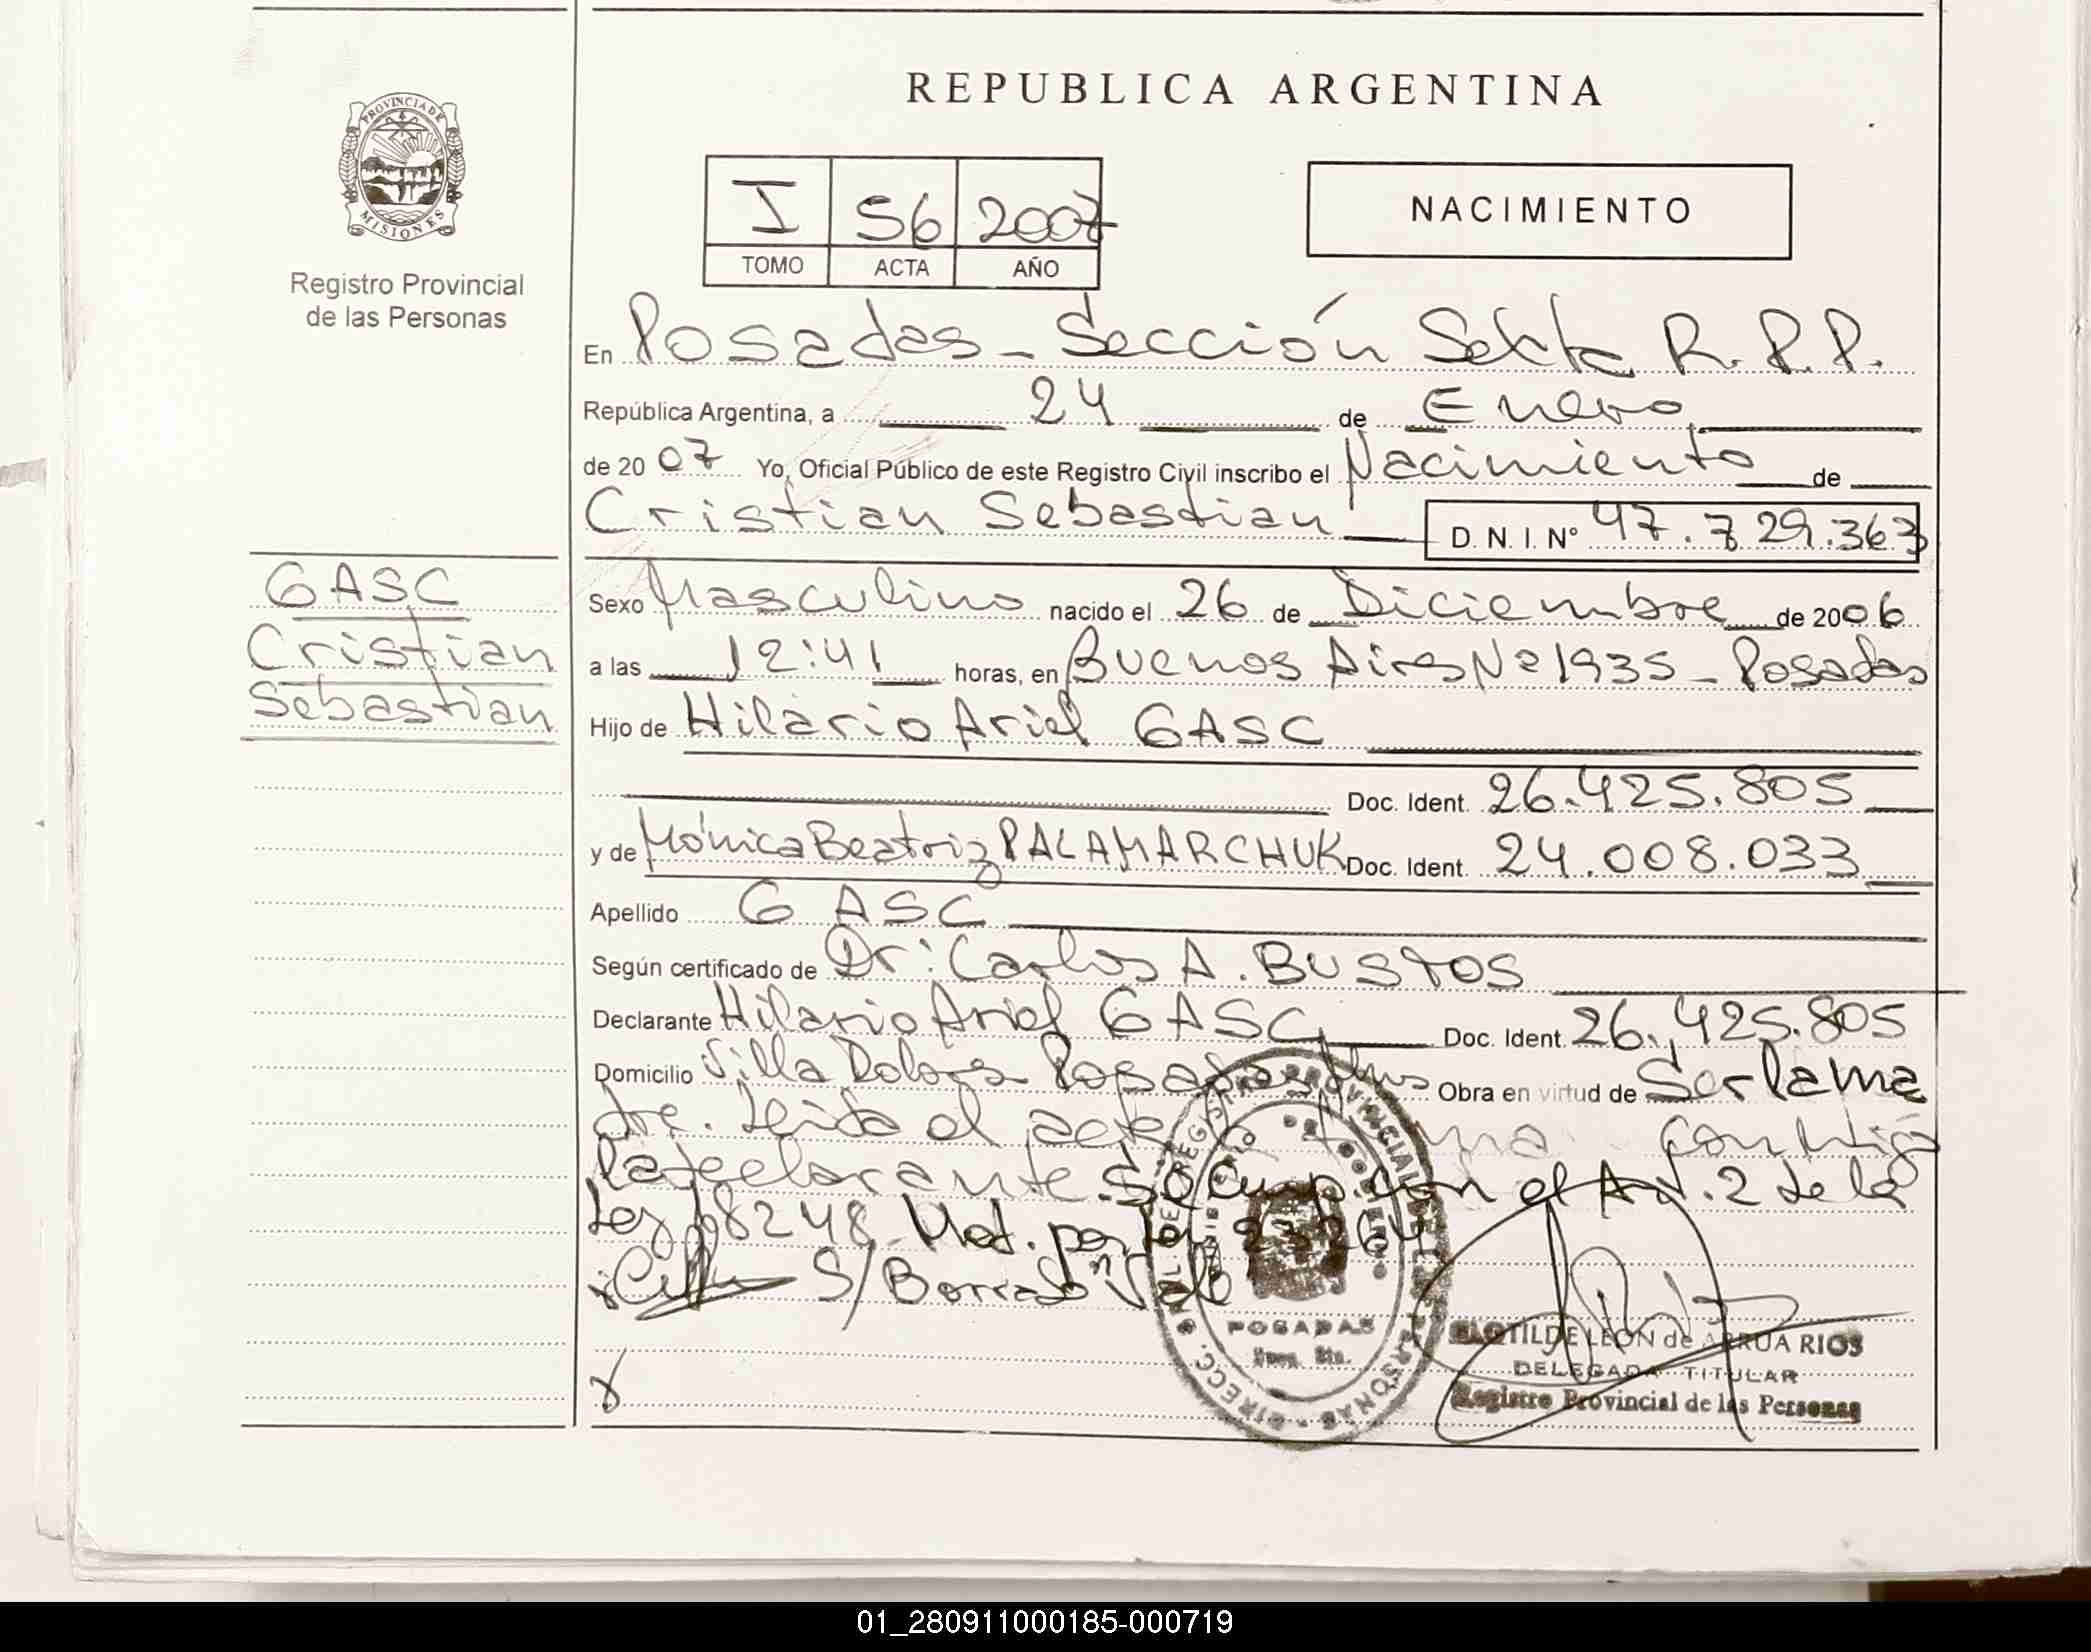 REPUBLICA ARGENTINA
PROVINCIA DE
MISIONES
Registro Provincial
de las Personas
I 56 2007
TOMO ACTA AÑO
NACIMIENTO
En Posadas - Sección Sexta R.P.P.
República Argentina, a 24 de Enero
de 20 07 Yo, Oficial Público de este Registro Civil inscribo el Nacimiento de
Cristian Sebastian D. N. I. Nº 47.729.363
GASC
Cristian
Sebastian
Sexo Masculino nacido el 26 de Diciembre de 2006
a las 12:41 horas, en Buenos Aires Nº 1935 - Posadas
Hijo de Hilario Ariel GASC
Doc. Ident. 26.425.805
y de Mónica Beatriz PALAMARCHUK Doc. Ident. 24.008.033
Apellido GASC
Según certificado de Dr: Carlos A. BUSTOS
Declarante Hilario Ariel GASC Doc. Ident. 26.425.805
Domicilio Villa Dolores Posadas Mns Obra en virtud de Ser la ma
dre. Leída el acta firma conmigo
la declarante. Se cump. con el Art. 2 de la
Ley 18248. Mod. por Ley 23264
S/ Borrado Vale
POSADAS
CLOTILDE LEON de ARRUA RIOS
DELEGADA TITULAR
Registro Provincial de las Personas
01_280911000185-000719